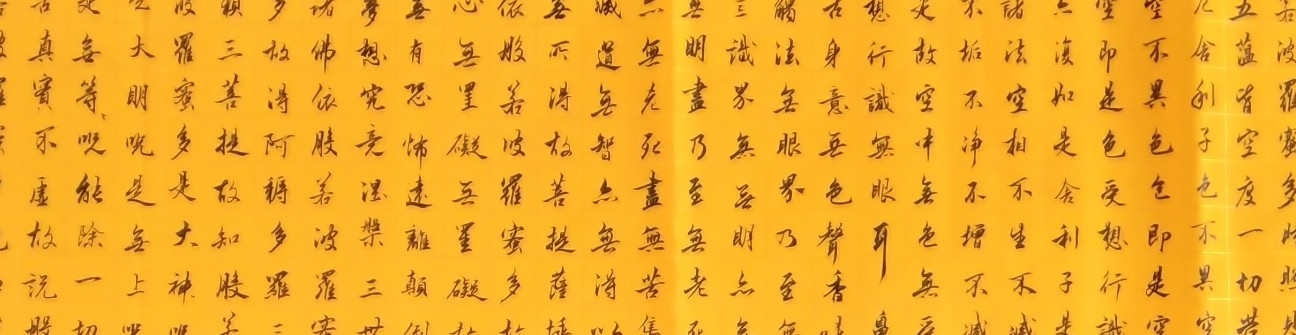 若波羅蜜多時照見
五蘊皆空度一切苦
舍利子色不異空
空不異色色即是空
空即是色受想行識
亦復如是舍利子是
諸法空相不生不滅
不垢不净不增不減
是故空中無色無受
想行識無眼耳鼻
舌身意無色聲香味
觸法無眼界乃至無
意識界無無明亦無
無明盡乃至無老死
亦無老死盡無苦集
滅道無智亦無得以
無所得故菩提薩埵
依般若波羅蜜多故
心無罣礙無罣礙故
無有恐怖遠離顛倒
夢想究竟涅槃三世
諸佛依般若波羅蜜
多故得阿耨多羅三
藐三菩提故知般若
波羅蜜多是大神咒
是大明咒是無上咒
是無等等咒能除一切
苦真實不虛故說般